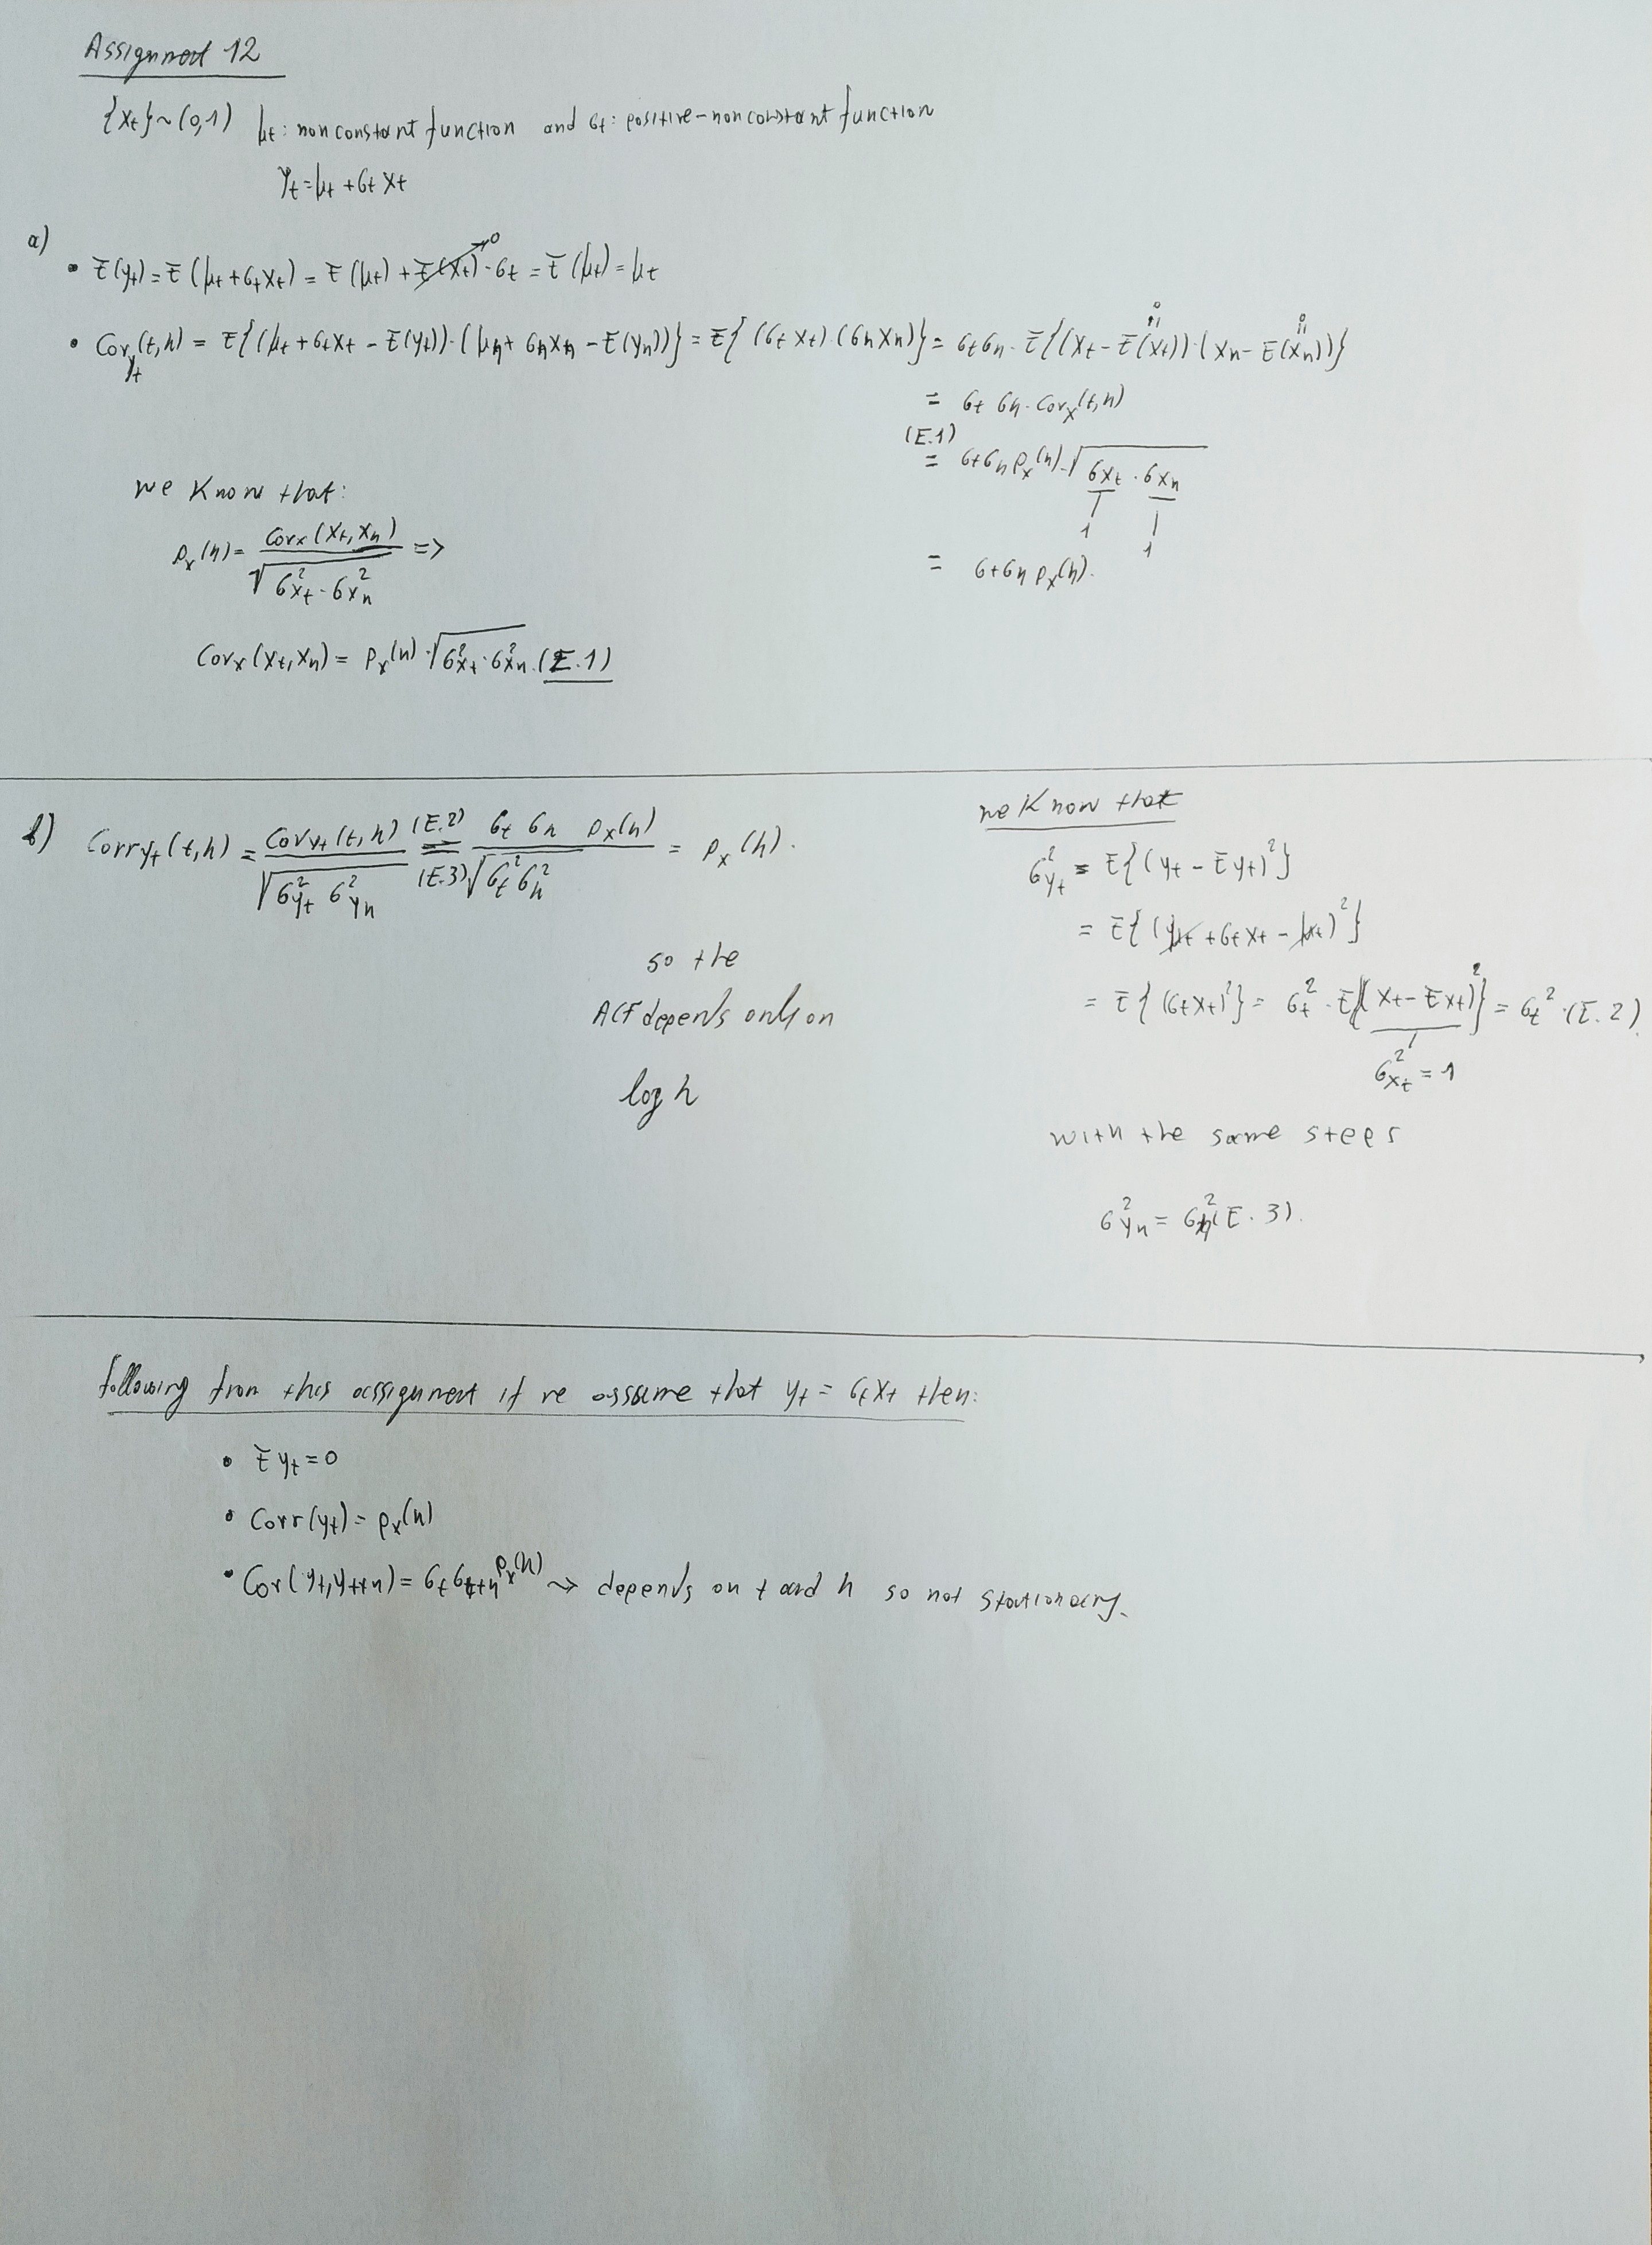 Assignment 12
{Xt} ~ (0,1) μt: nonconstant function and σt: positive-nonconstant function
Yt = μt + σt Xt
a)
• E(yt) = E(μt + σt Xt) = E(μt) + E(Xt)·σt = E(μt) = μt
0
• Cov_yt(t,h) = E{(μt + σt Xt - E(yt))·(μh + σh Xh - E(yh))} = E{(σt Xt)·(σh Xh)} = σt σh · E{(Xt - E(Xt))·(Xh - E(Xh))}
0 0
= σt σh · Cov_x(t,h)
(E.1)
= σt σh ρx(h)·√(σXt · σXh)
1 1
= σt σh ρx(h).
we know that:
ρx(h) = Covx(Xt, Xh) / √(σ²Xt · σ²Xh) =>
Covx(Xt, Xh) = ρx(h)·√(σ²Xt · σ²Xh). (E.1)
b) Corr_yt(t,h) = Cov_yt(t,h) / √(σ²yt σ²yh) = (E.2) (E.3) σt σh ρx(h) / √(σt² σh²) = ρx(h).
so the
ACF depends only on
log h
we know that
σ²yt = E{(yt - Eyt)²}
= E{(μt + σt Xt - μt)²}
= E{(σt Xt)²} = σt² · E{(Xt - EXt)²} = σt² · (E.2)
σ²Xt = 1
with the same steps
σ²yh = σh² (E.3).
following from this assignment if we assume that yt = σt Xt then:
• Eyt = 0
• Corr(yt) = ρx(h)
• Cov(yt, yt+h) = σt σt+h ρx(h) → depends on t and h so not stationary.